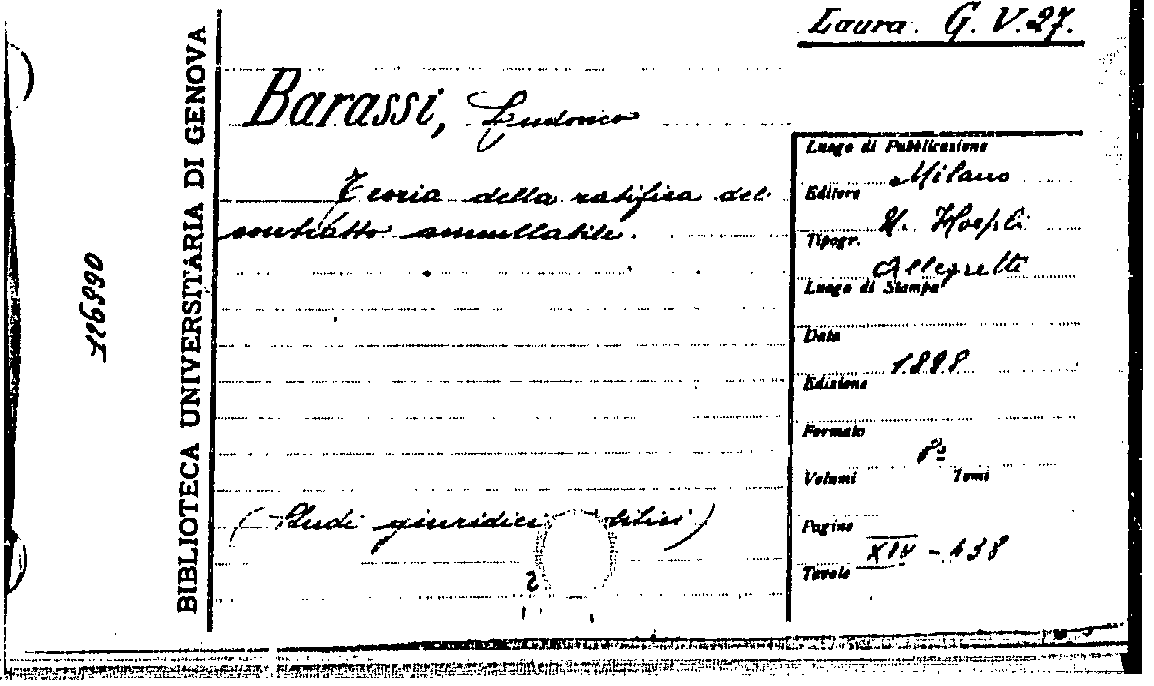 Laura. G. V. 27.
BIBLIOTECA UNIVERSITARIA DI GENOVA
126990
Barassi, Ludovico
Teoria della ratifica del
contratto annullabile.
(Studi giuridici
Luogo di Pubblicazione
Milano
Editore
U. Hoepli
Tipogr.
Allegretti
Luogo di Stampa
Data
1898
Edizione
Formato
8º
Volumi Tomi
Pagine
XIV - 438
Tavole
2